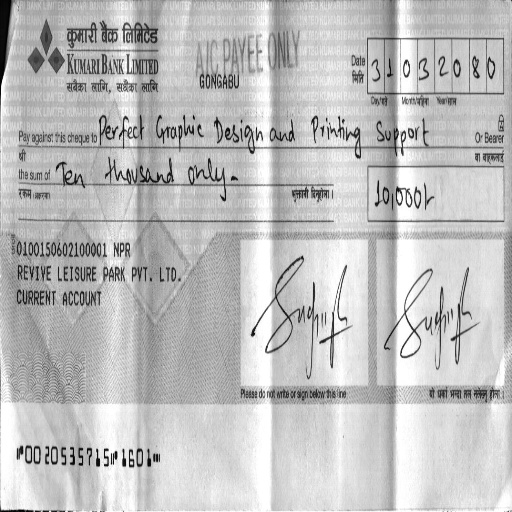 कुमारी बैंक लिमिटेड
KUMARI BANK LIMITED
सबैका लागि, सधैंका लागि
A/C PAYEE ONLY
GONGABU
Date 31032080
मिति
Day/गते Month/महिना Year/साल
Pay against this cheque to Perfect Graphic Design and Printing Support Or Bearer
श्री वा वाहकलाई
the sum of Ten thousand only-
रकम (अक्षरमा) भुक्तानी दिनुहोला । 10,000/-
0100150602100001 NPR
REVIVE LEISURE PARK PVT. LTD.
CURRENT ACCOUNT
Please do not write or sign below this line यो धर्का भन्दा तल नलेख्नु होला ।
⑈0020535715⑈1601⑈